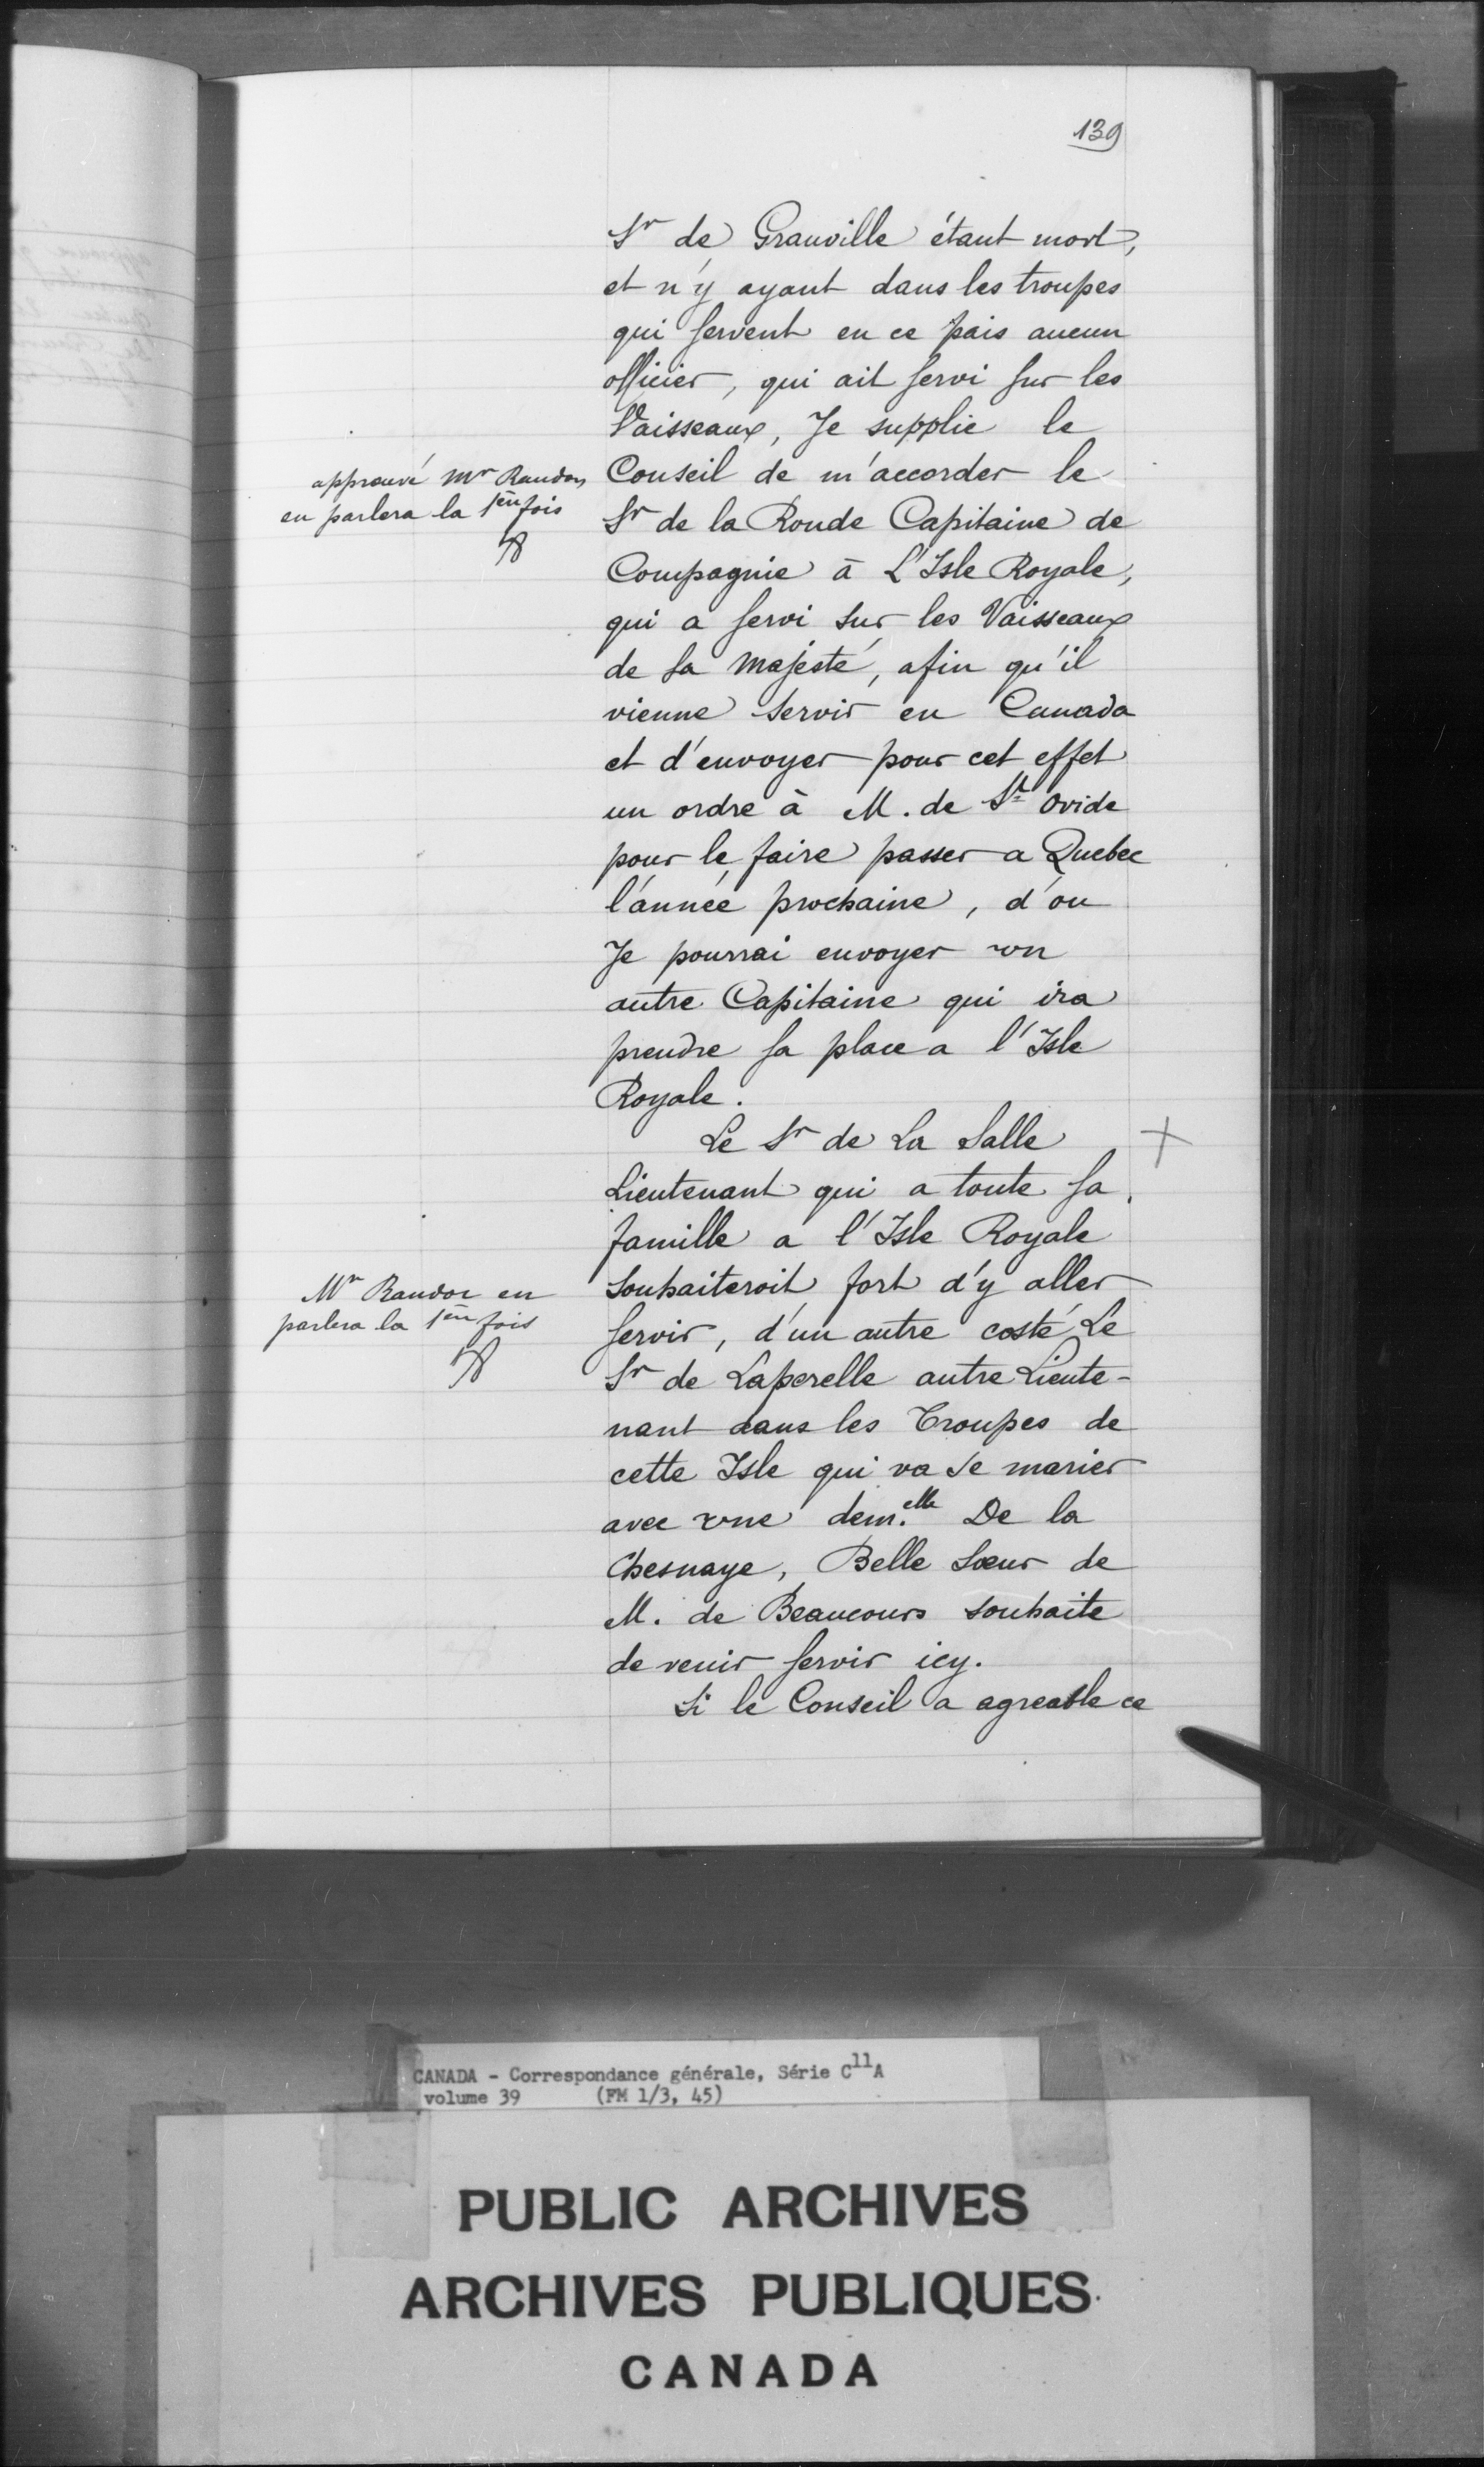 139
Sr de Granville étant mort,
et n'y ayant dans les troupes
qui servent en ce païs aucun
officier, qui ait servi sur les
Vaisseaux, Je supplie le
Conseil de m'accorder le
Sr de la Ronde Capitaine de
Compagnie à L'Isle Royale,
qui a servi sur les Vaisseaux
de sa Majesté, afin qu'il
vienne servir en Canada
et d'envoyer pour cet effet
un ordre à M. de St Ovide
pour le faire passer a Quebec
l'année prochaine, d'ou
Je pourrai envoyer un
autre Capitaine qui ira
prendre sa place a l'Isle
Royale.
approuvé Mr Raudon
en parlera la 1ere fois
Le Sr de La Salle
Lieutenant qui a toute sa
famille a l'Isle Royale
Souhaiteroit fort d'y aller
servir, d'un autre costé Le
Sr de Laperelle autre Lieute-
nant dans les Troupes de
cette Isle qui va se marier
avec une dem.elle De la
Chesnaye, Belle Soeur de
M. de Beaucours souhaite
de venir servir icy.
Si le Conseil a agreable ce
Mr Raudon en
parlera la 1ere fois
CANADA - Correspondance générale, Série C11A
volume 39 (FM 1/3, 45)
PUBLIC ARCHIVES
ARCHIVES PUBLIQUES
CANADA